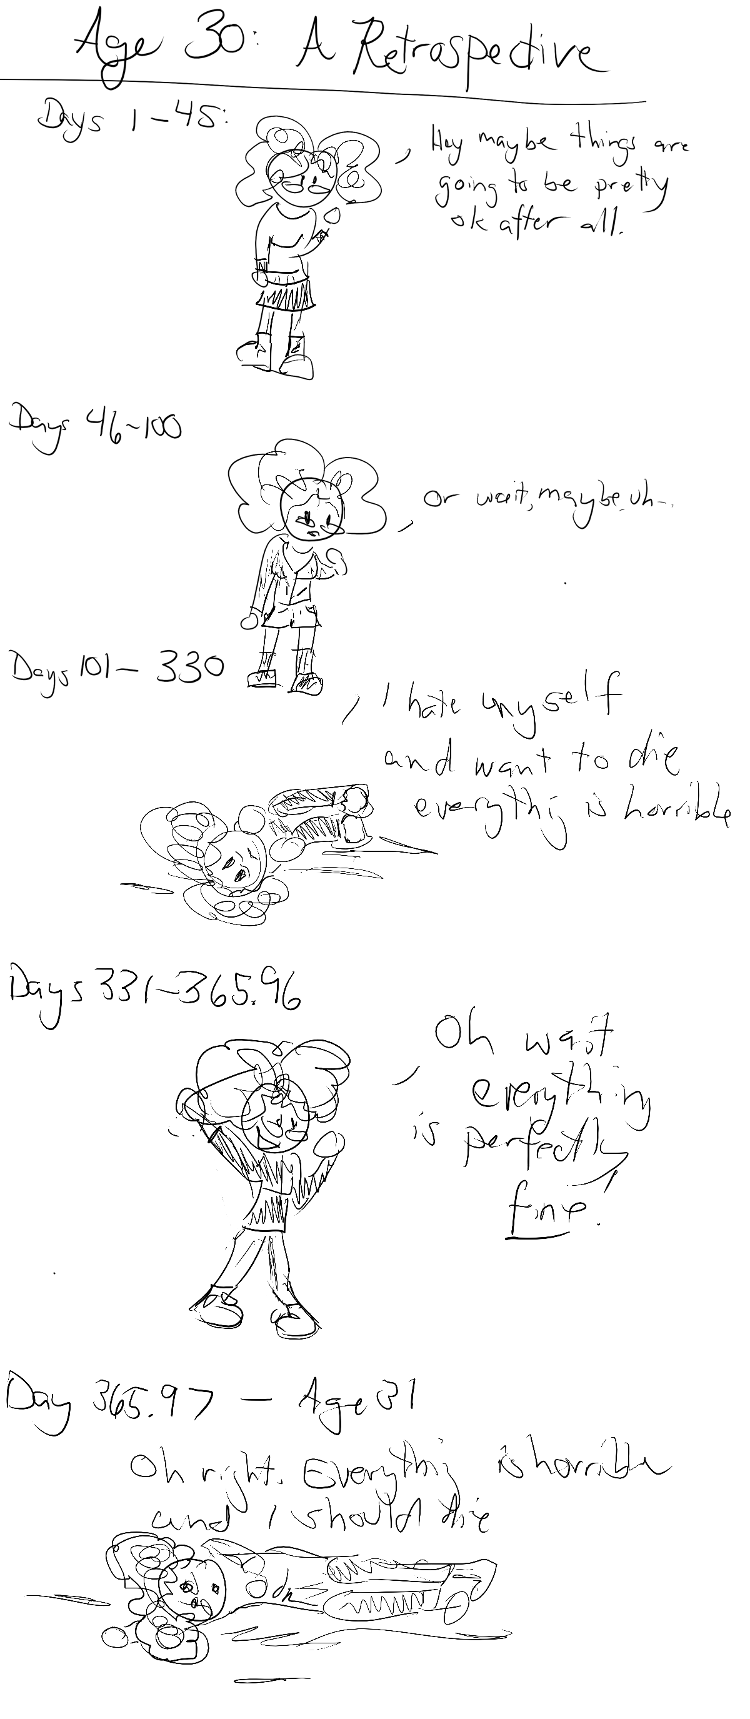 Age 30: A Retrospective
Days 1-45:
Hey maybe things are
going to be pretty
ok after all.
Days 46-100
Or wait, maybe, uh..
Days 101-330
I hate myself
and want to die
everythig is horrible
Days 331-365.96
Oh wait
everything
is perfectly
fine!
Day 365.97 - Age 31
Oh right. Everythig is horrible
and I should die